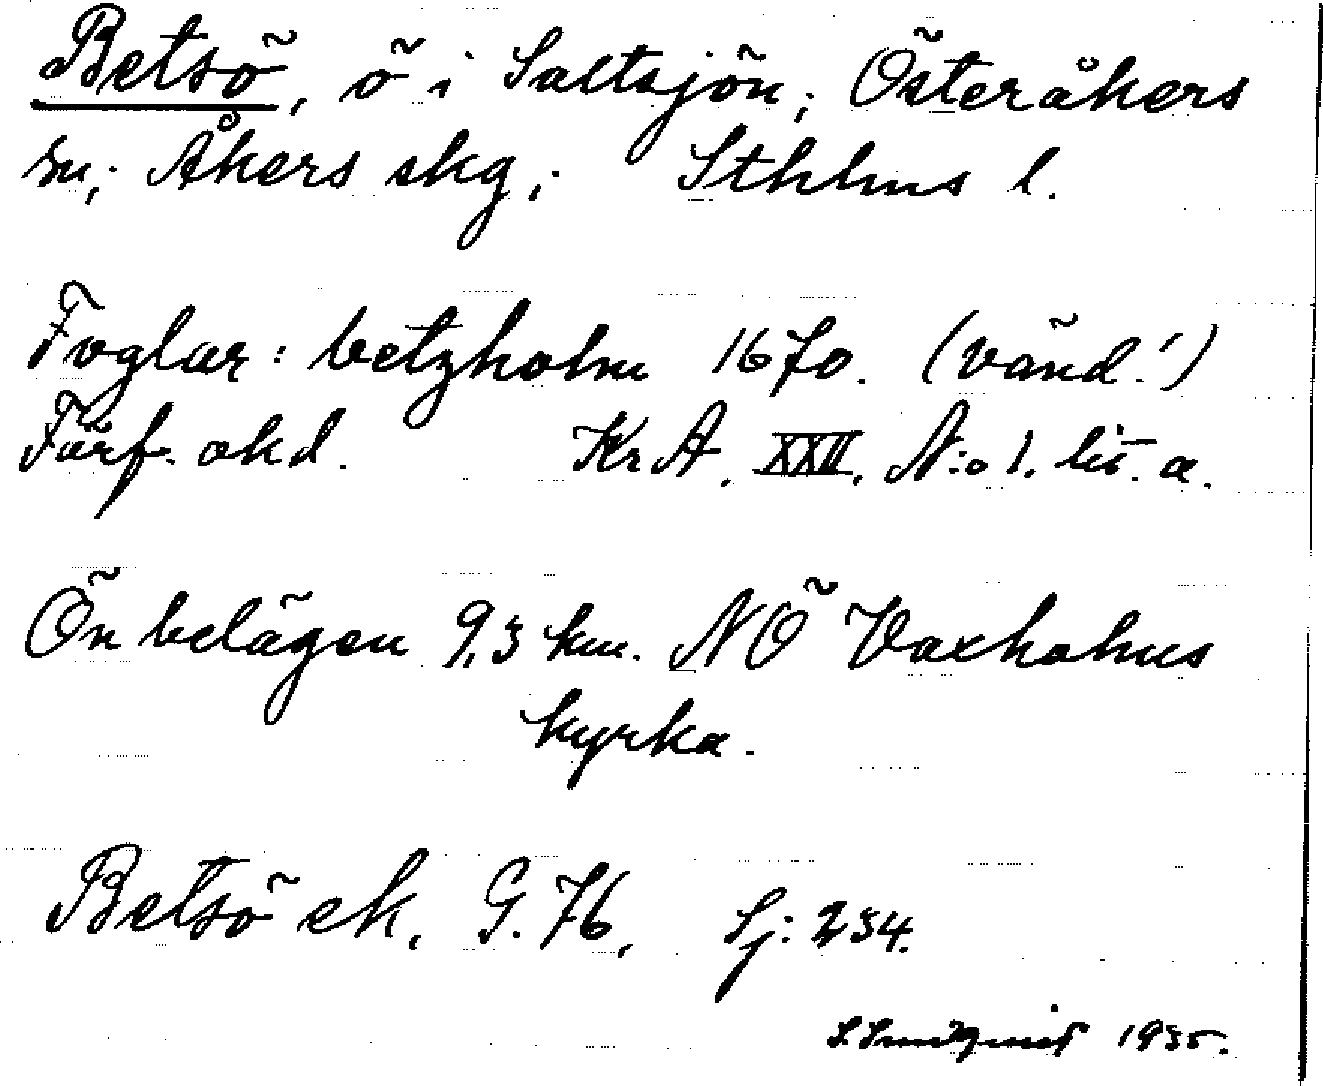 Betsö, ö i Saltsjön; Österåkers
sn; Åkers skg; Sthlms l.
Foglar: betzholm 1670. (vänd!)
Förf. okd. KrA. XXII. N:o 1. lit. a.
Ön belägen 9,3 km. NÖ Vaxholms
kyrka.
Betsö ek. G. 76, Sj: 234.
S. Sundquist 1935.